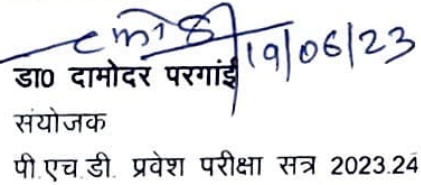 19/06/23
डा0 दामोदर परगांई
संयोजक
पी.एच.डी. प्रवेश परीक्षा सत्र 2023.24